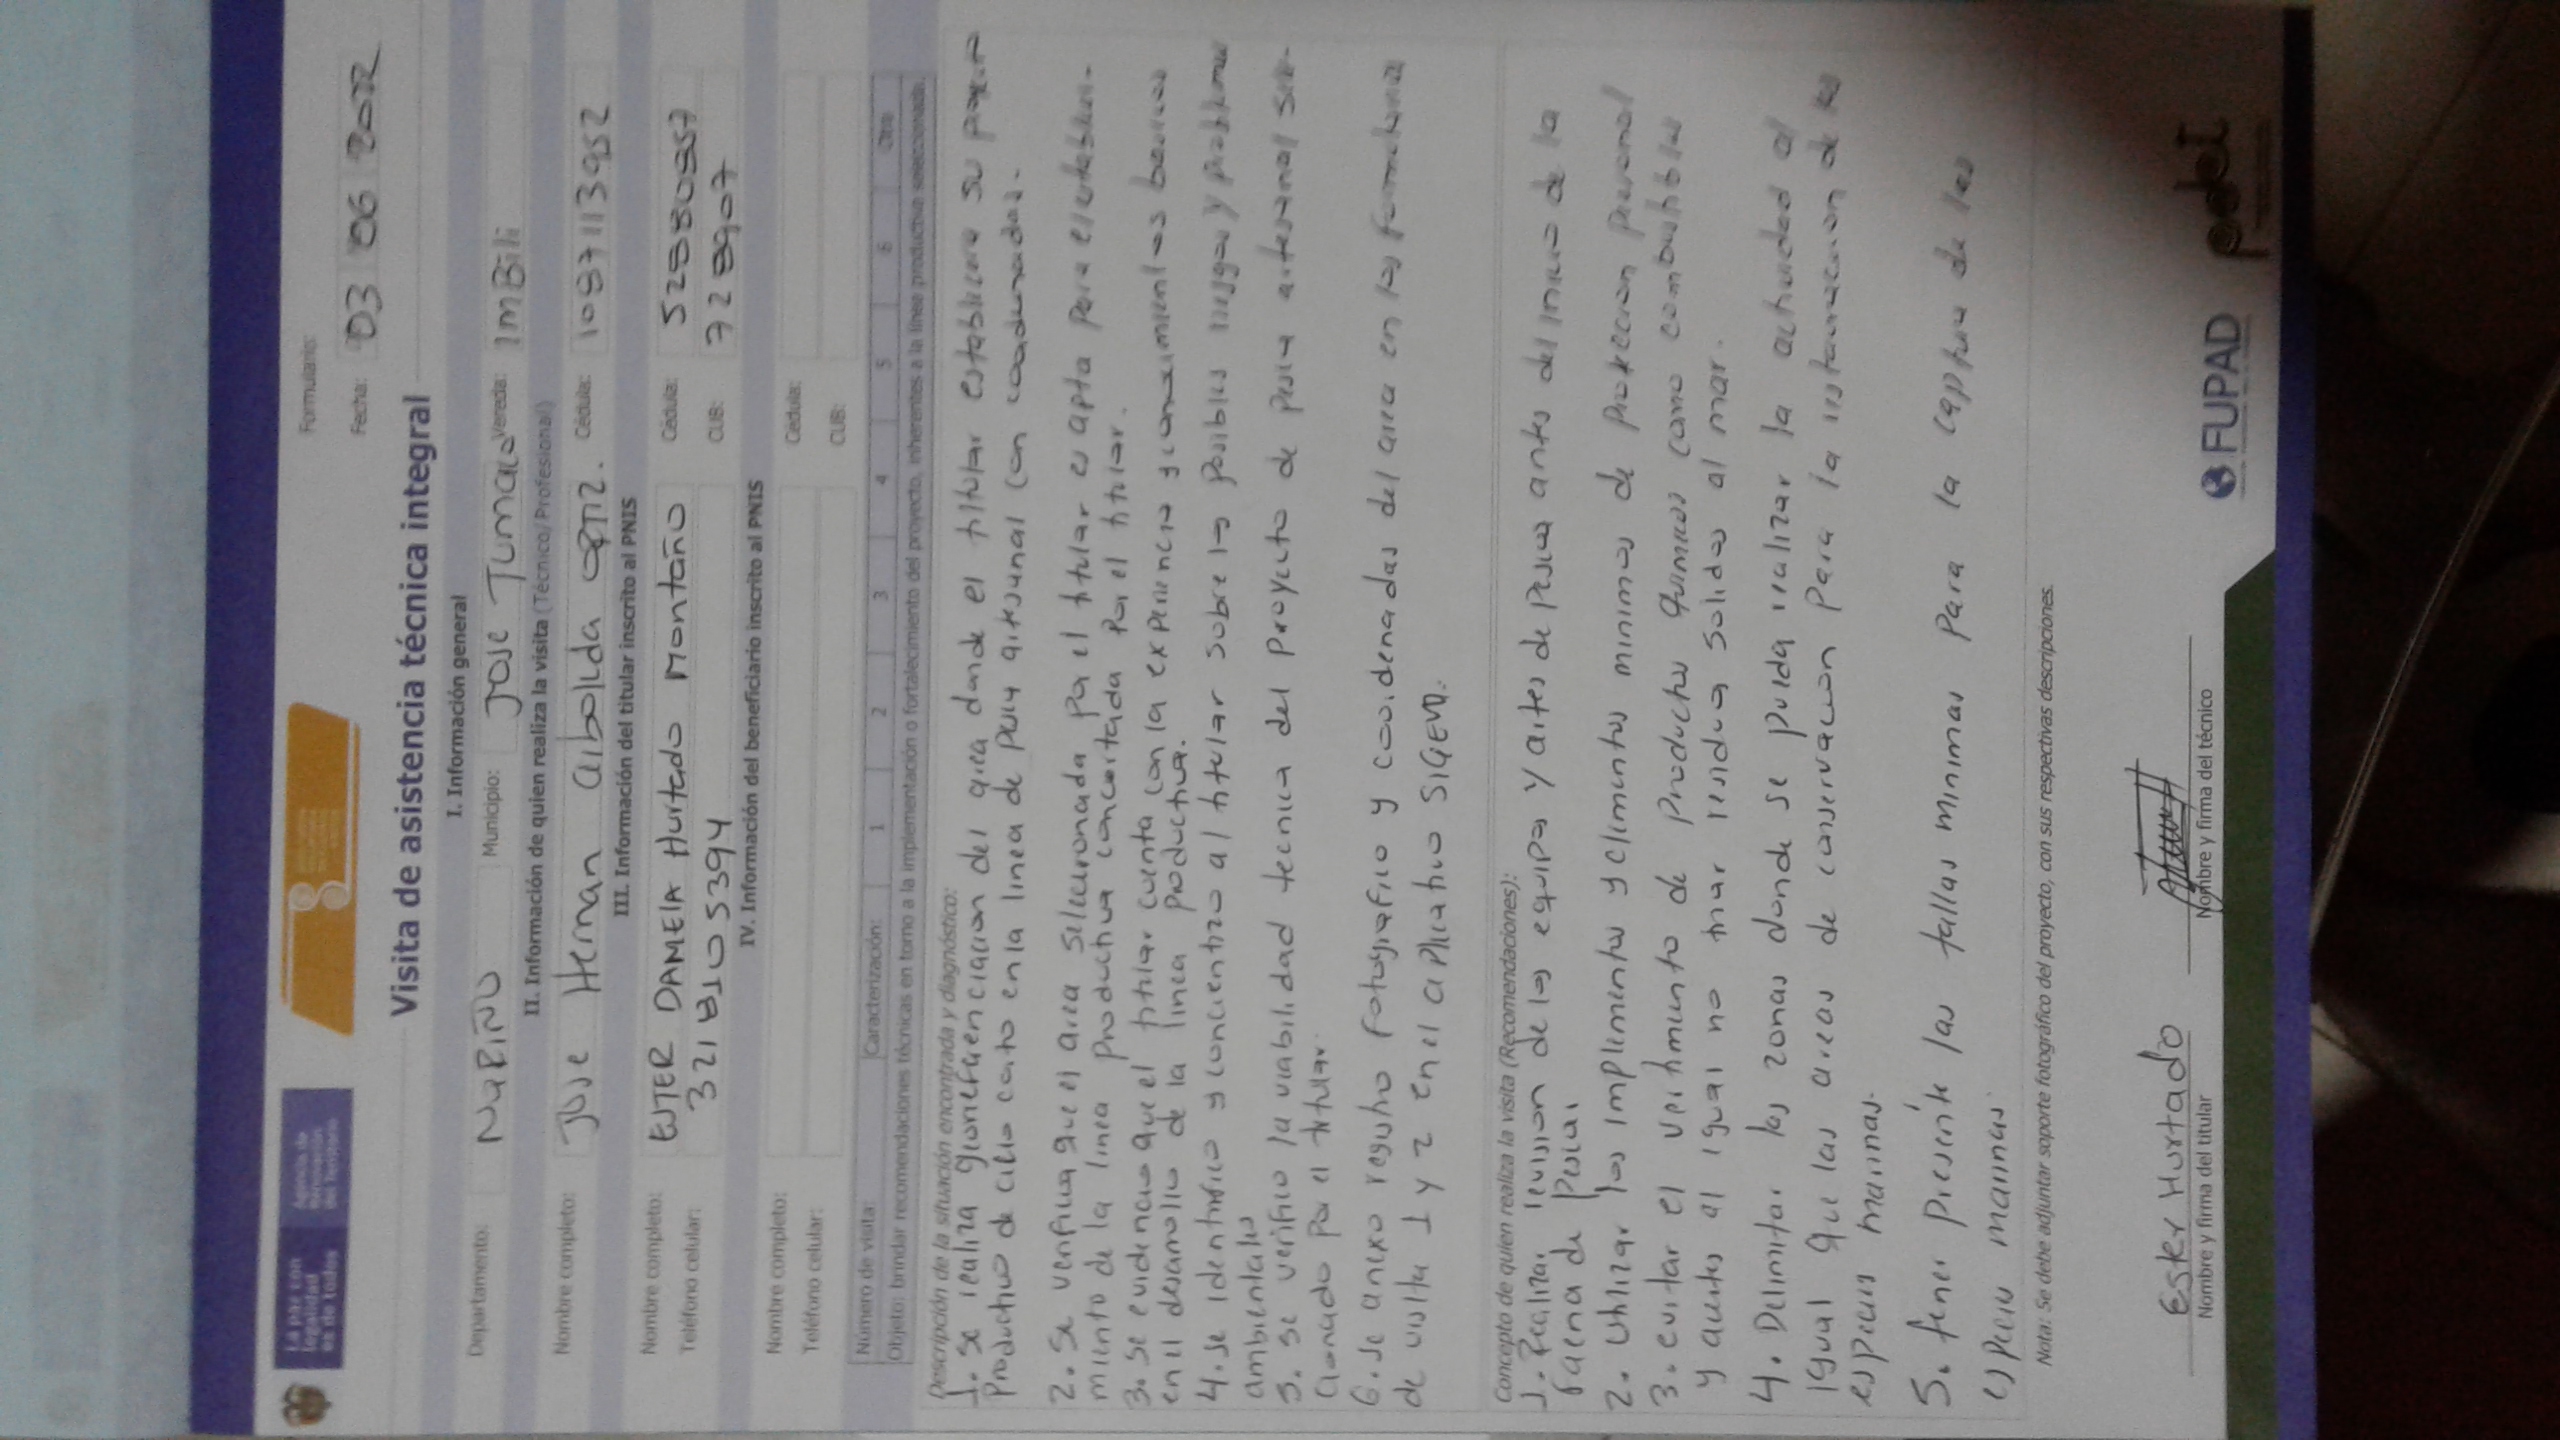 La paz con legalidad es de todos
Agencia de Renovación del Territorio
Formulario:
Fecha: 03 06 2022
Visita de asistencia técnica integral
I. Información general
Departamento: NaRiÑO Municipio: JOSE Tumaco Vereda: ImBili
II. Información de quien realiza la visita (Técnico/ Profesional)
Nombre completo: Jose Hernan arboleda ortiz. Cédula: 1087113952
III. Información del titular inscrito al PNIS
Nombre completo: ESTER DANIELA Hurtado Montaño Cédula:
Teléfono celular: CUB:
IV. Información del beneficiario inscrito al PNIS
Nombre completo: Cédula:
Teléfono celular: CUB:
Número de visita: Caracterización: 1 2 3 4 5 6 Otra
Objeto: brindar recomendaciones técnicas en torno a la implementación o fortalecimiento del proyecto, inherentes a la línea productiva seleccionada.
Descripción de la situación encontrada y diagnóstico:
1. se realiza giorreferenciacion del area donde el titular establecera su
Productivo de ciclo corto en la linea de pesca artesanal con coordenadas.
2. se verifica que el area seleccionada por el titular es apta para el establesi-
miento de la linea Productiva concertada Por el titular.
3. se evidencio que el titular cuenta con la experiencia y conosimientos basicos
en el desarrollo de la linea productiva.
4. se identifico y concientizo al titular sobre los posibles riesgos y problemas
ambientales
5. se verifico la viabilidad tecnica del proyecto de pesca artesanal
cionado por el titular.
6. se anexo registro fotografico y coordenadas del area en los formularios
de visita 1 y 2 en el aplicativo SIGEVA.
Concepto de quien realiza la visita (Recomendaciones):
1. Realizar revision de los equipos y artes de pesca antes del inicio de la
faena de pesca.
2. utilizar los implementos y elementos minimos de proteccion personal
3. evitar el vertimiento de productos quimicos como combustibles
y aceites al igual no tirar residuos solidos al mar.
4. Delimitar las zonas donde se pueda realizar la actividad al
igual que las areas de conservacion Para la restauracion de las
especies marinas.
5. tener presente las tallas minimas para la captura de las
especies marinas.
Nota: Se debe adjuntar soporte fotográfico del proyecto, con sus respectivas descripciones.
Ester Hurtado
Nombre y firma del titular Nombre y firma del técnico
FUPAD pdet